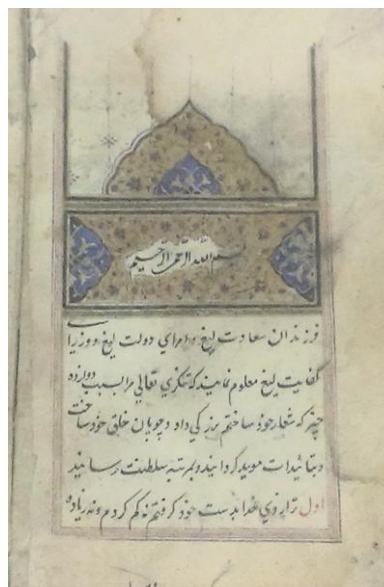 بسم الله الرحمن الرحیم
فرزندان سعادت لیغ و امرای دولت لیغ و وزرای
کفایت لیغ معلوم نمایند که تنکری تعالی مرا بسبب دوازده
چیز که شعار خود ساختم بزرکی داد و چوبان خلق خود ساخت
و بتائیدات موید کردانید و بمرتبه سلطنت رسانید
اول ترازوی خدا بدست خود کرفتم نه کم کردم و نه زیاده